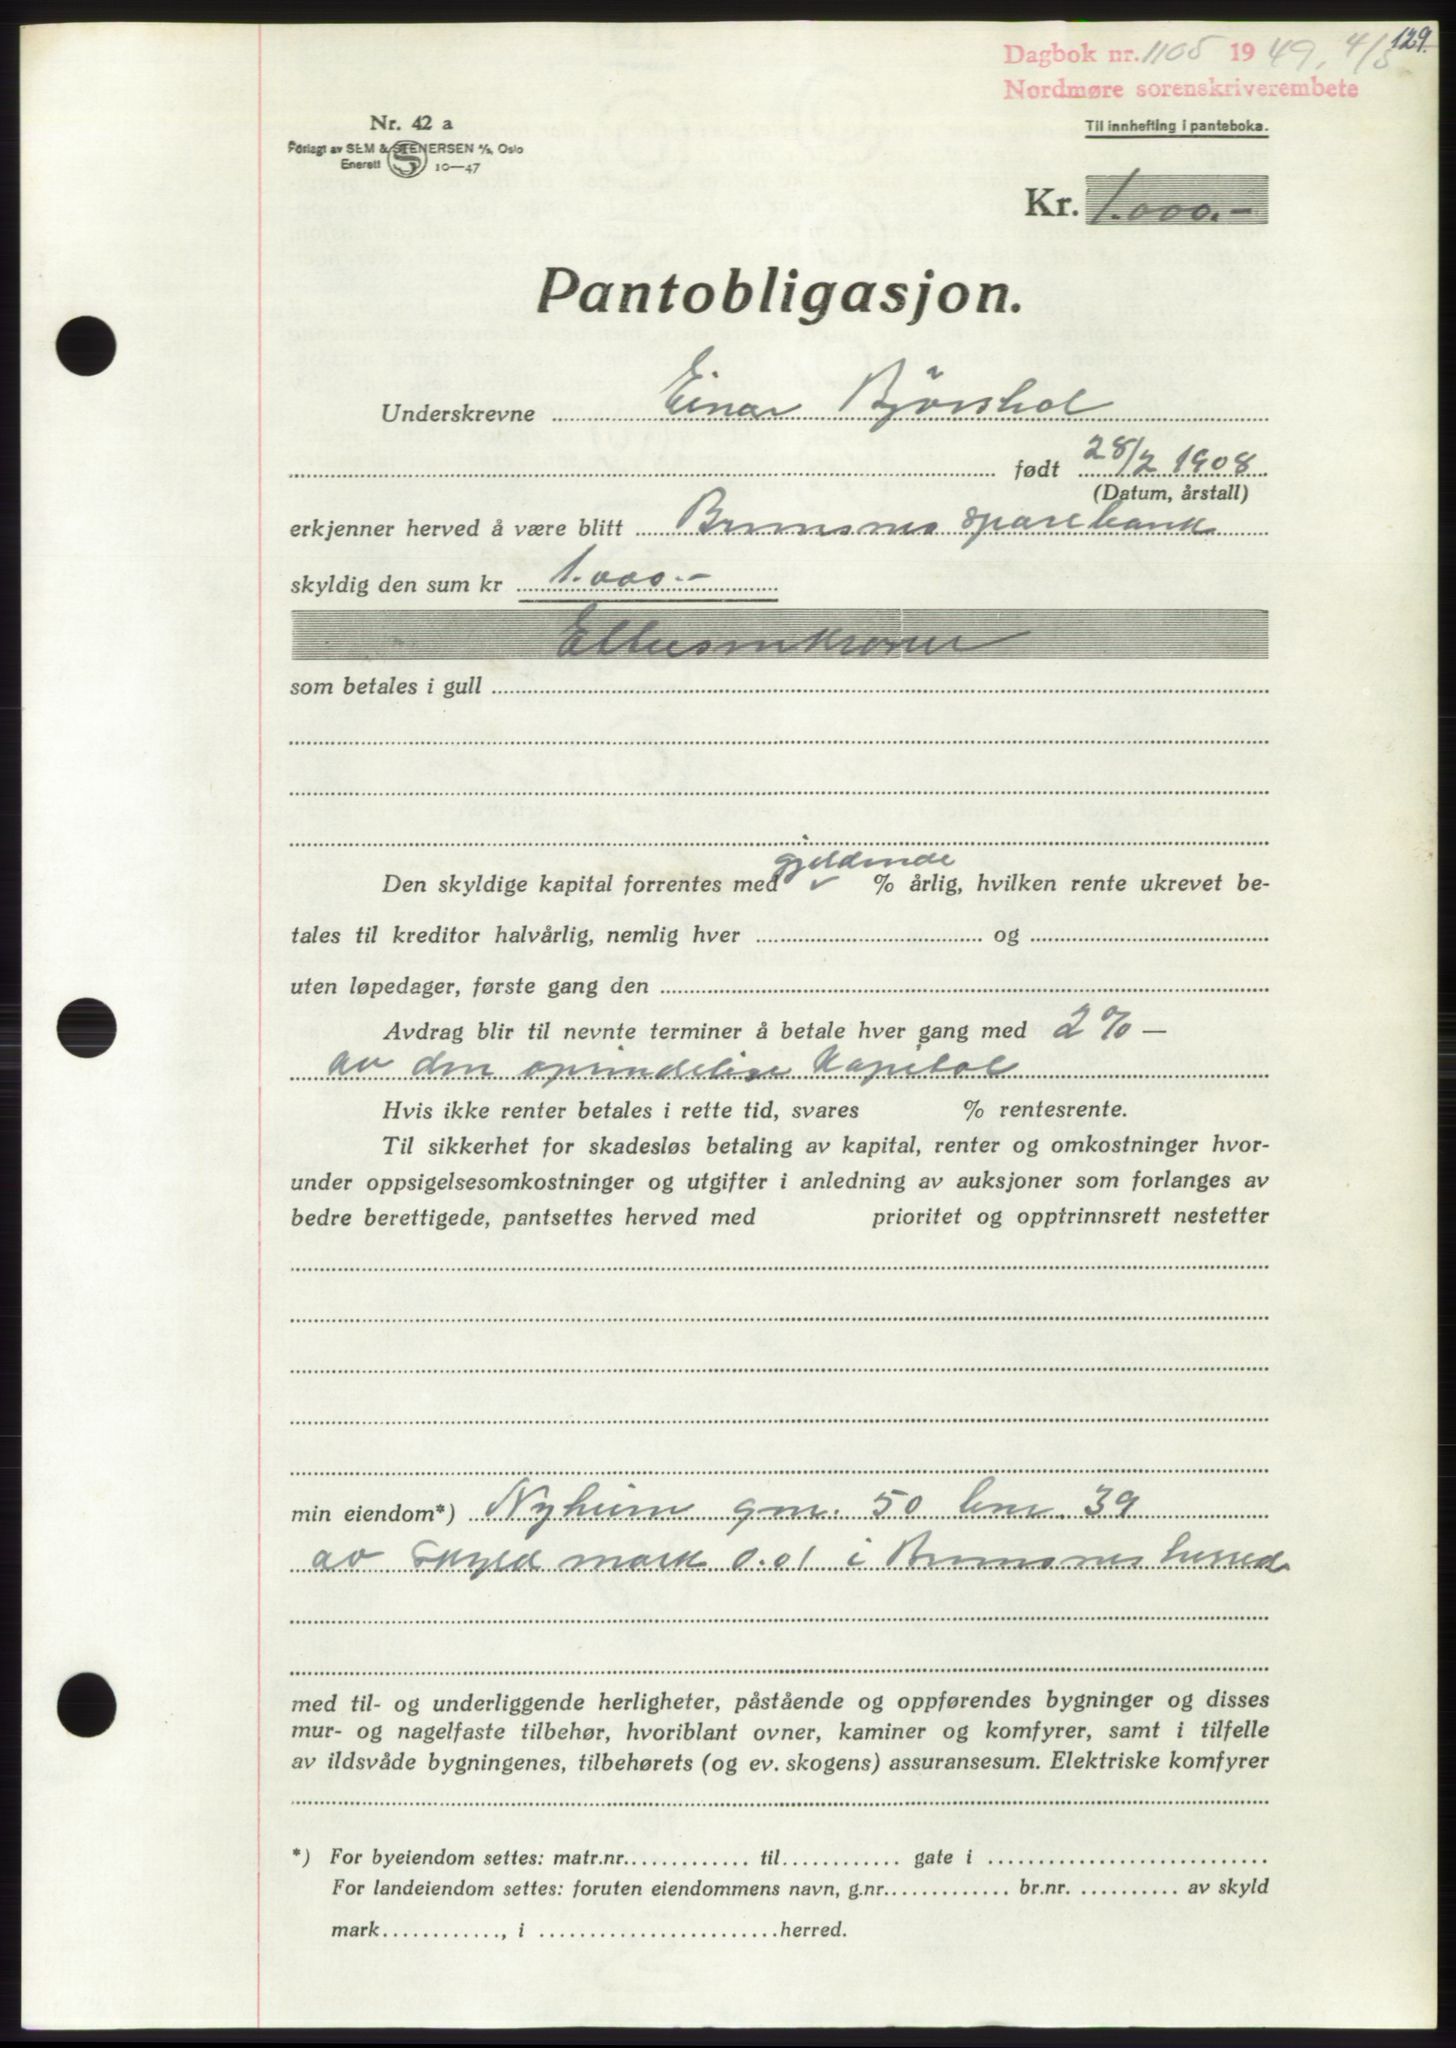 129.
Dagbok nr. 1105 1949, 4/3
Nordmøre sorenskriverembete
Nr. 42 a
Forlagt av SEM & STENERSEN A/S, Oslo
Enerett S 10—47
Til innhefting i panteboka.
Kr. 1.000.-
Pantobligasjon.
Underskrevne Einar Bjørshol
født 28/2 1908
(Datum, årstall)
erkjenner herved å være blitt Bremsnes sparebank
skyldig den sum kr 1.000.-
Ettusenkroner
som betales i gull
gjeldende
Den skyldige kapital forrentes med % årlig, hvilken rente ukrevet be-
tales til kreditor halvårlig, nemlig hver og
uten løpedager, første gang den
Avdrag blir til nevnte terminer å betale hver gang med 2% —
av den oprindelige kapital
Hvis ikke renter betales i rette tid, svares % rentesrente.
Til sikkerhet for skadesløs betaling av kapital, renter og omkostninger hvor-
under oppsigelsesomkostninger og utgifter i anledning av auksjoner som forlanges av
bedre berettigede, pantsettes herved med prioritet og opptrinnsrett nestetter
min eiendom*) Nyheim gnr. 50 bnr. 39
av skyld mark 0.01 i Bremsnes herred
med til- og underliggende herligheter, påstående og oppførendes bygninger og disses
mur- og nagelfaste tilbehør, hvoriblant ovner, kaminer og komfyrer, samt i tilfelle
av ildsvåde bygningenes, tilbehørets (og ev. skogens) assuransesum. Elektriske komfyrer
*) For byeiendom settes: matr.nr. til gate i
For landeiendom settes: foruten eiendommens navn, g.nr. br.nr. av skyld
mark, i herred.